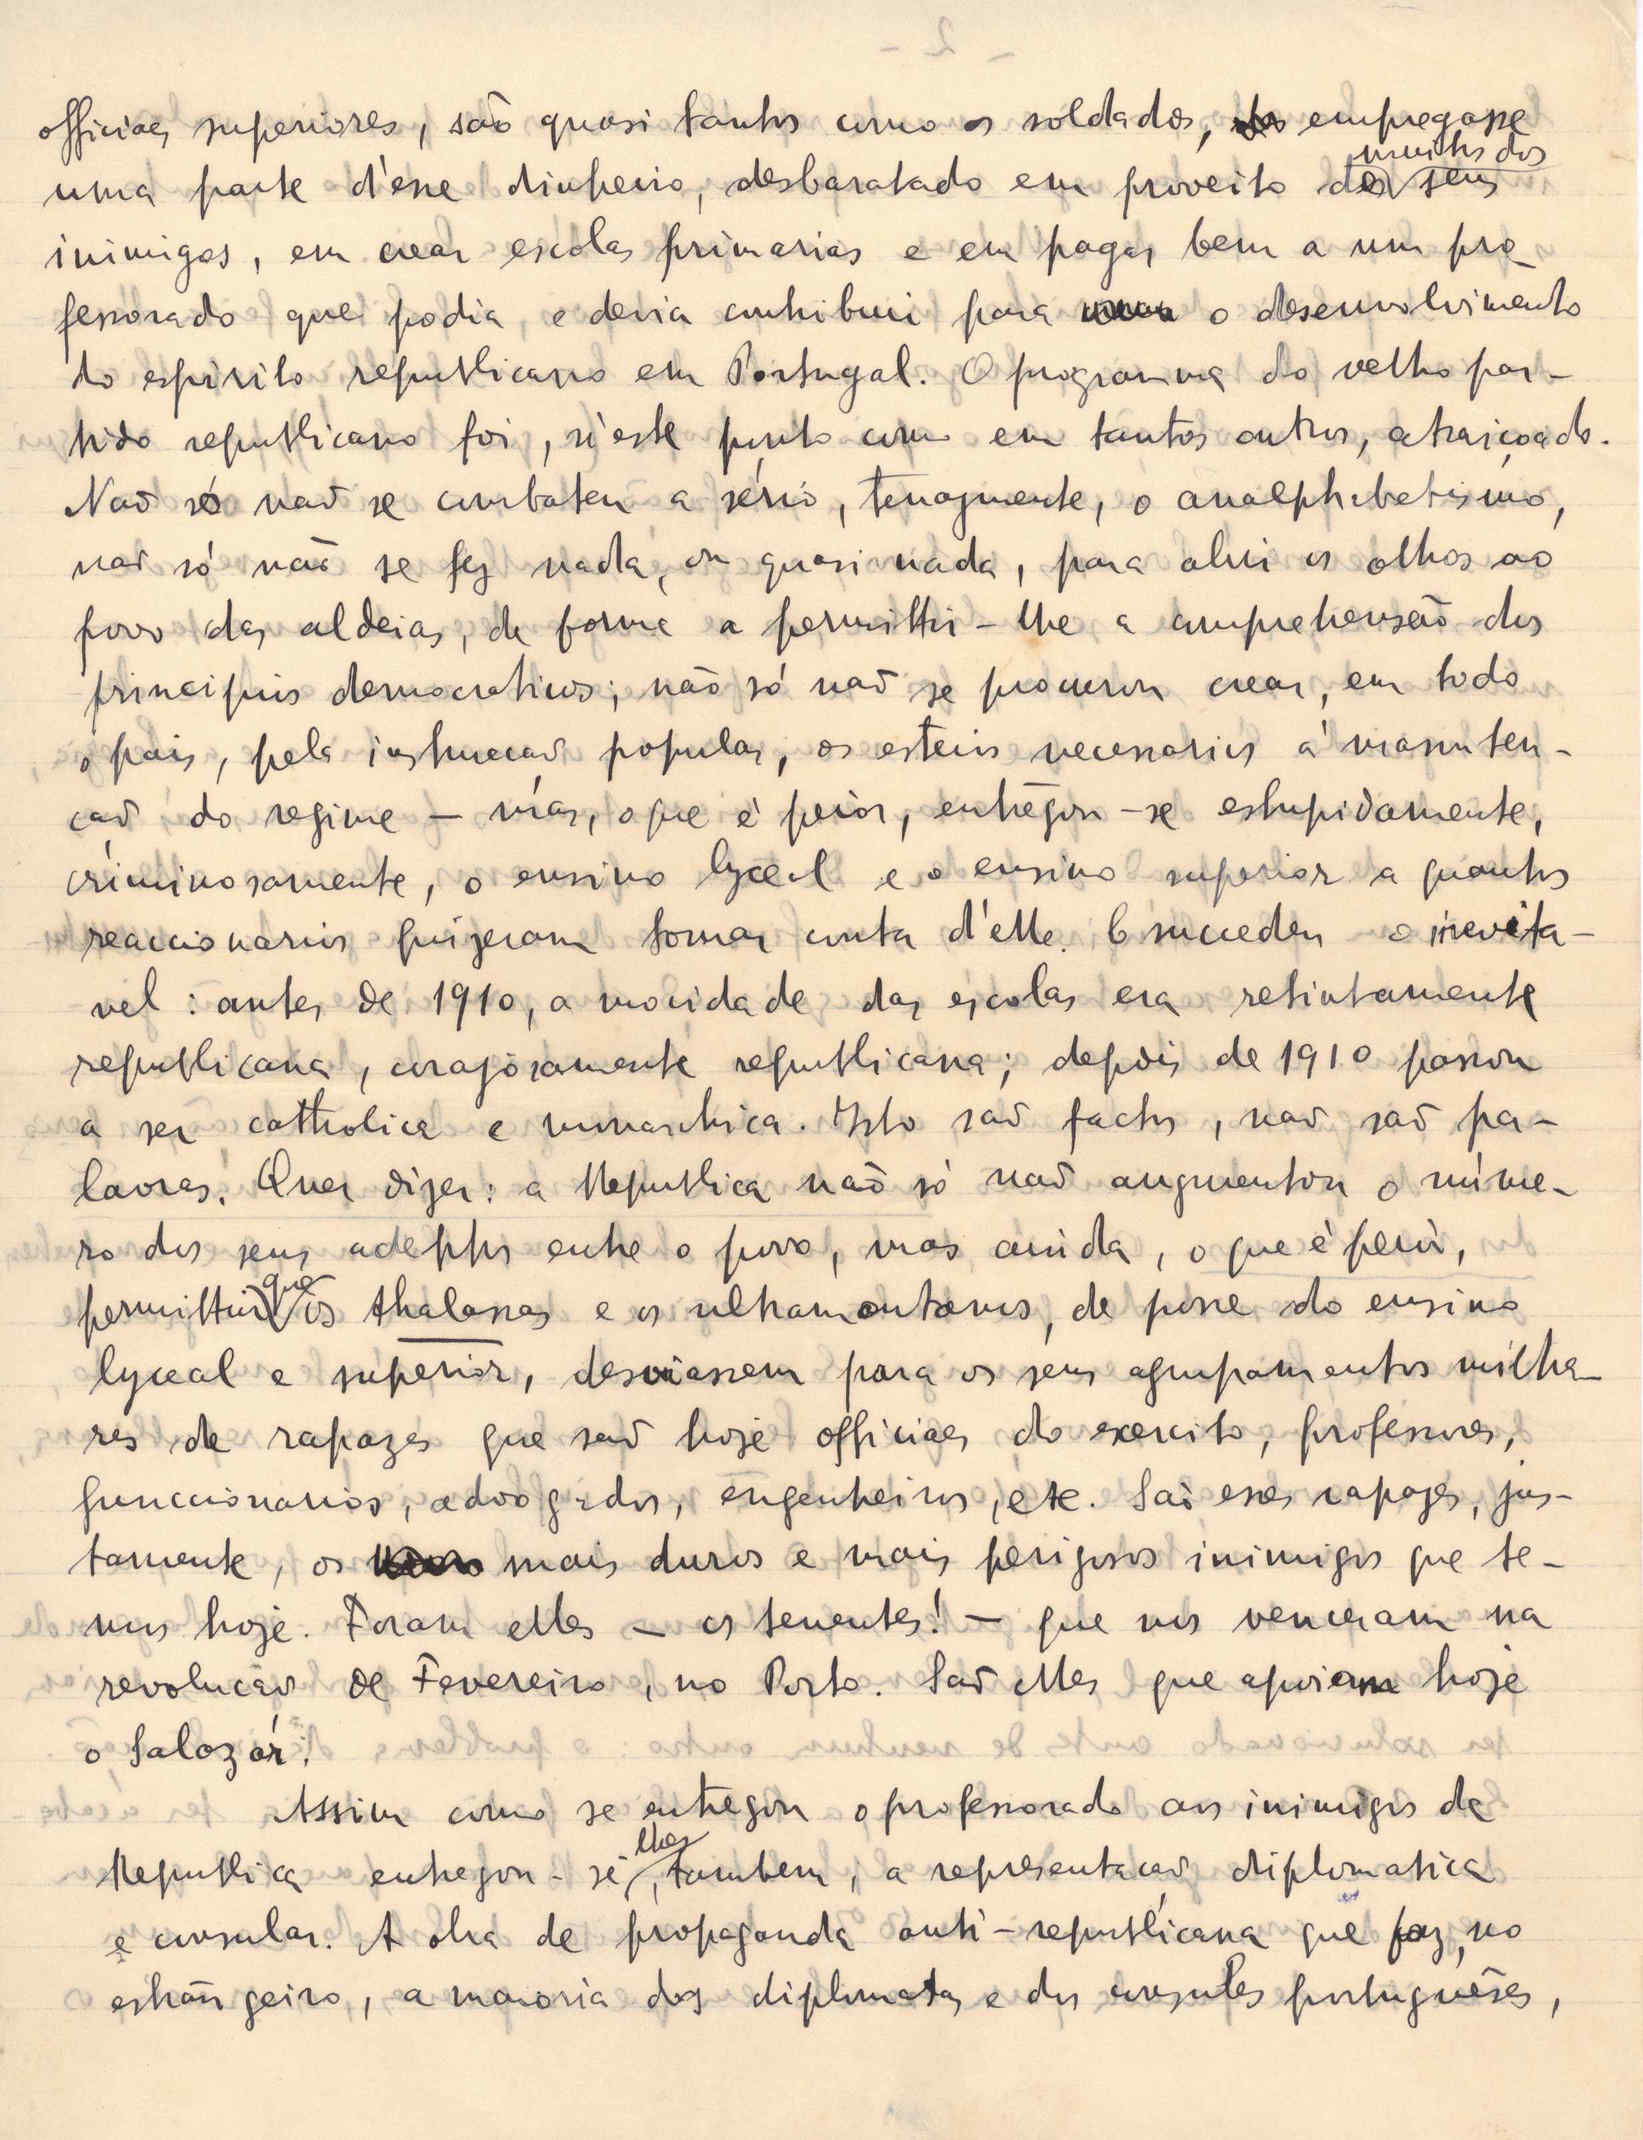 officiaes superiores, são quasi tantos como os soldados, empregasse
uma parte d'esse dinheiro, desbaratado em proveito de muitos dos seus
inimigos, em crear escolas primarias e em pagar bem a um pro-
fessorado que podia e devia contribuir para o desenvolvimento
do espirito republicano em Portugal. O programma do velho par-
tido republicano foi, n'este ponto como em tantos outros, atraiçoado.
Não só não se combateu a sério, tenazmente, o analphabetismo,
não só não se fez nada, ou quasi nada, para abrir os olhos ao
povo das aldeias, de forma a permittir-lhe a comprehensão dos
principios democraticos; não só não se procurou crear, em todo
o pais, pela instrucção popular, os esteios necessarios á manuten-
ção do regime — mas, o que é peior, entregou-se estupidamente,
criminosamente, o ensino lyceal e o ensino superior a quantos
reaccionarios quizeram tomar conta d'elle. E succedeu o inevita-
vel: antes de 1910, a mocidade das escolas era retintamente
republicana, corajosamente republicana; depois de 1910 passou
a ser catholica e monarchica. Isto são factos, não são pa-
lavras. Quer dizer: a Republica não só não augmentou o núme-
ro dos seus adeptos entre o povo, mas ainda, o que é peior,
permittiu que os thalassas e os ultramontanos, de posse do ensino
lyceal e superior, desviassem para os seus agrupamentos milha-
res de rapazes que são hoje officiaes do exercito, professores,
funccionarios, advogados, engenheiros, etc. São esses rapazes, jus-
tamente, os mais duros e mais perigosos inimigos que te-
mos hoje. Foram elles — os tenentes! — que nos venceram na
revolução de Fevereiro, no Porto. São elles que apoiam hoje
o Salazar.
Assim como se entregou o professorado aos inimigos da
Republica entregou-se-lhes, tambem, a representação diplomatica
e consular. A obra de propaganda anti-republicana que faz, no
estrangeiro, a maioria dos diplomatas e dos consules portuguêses,